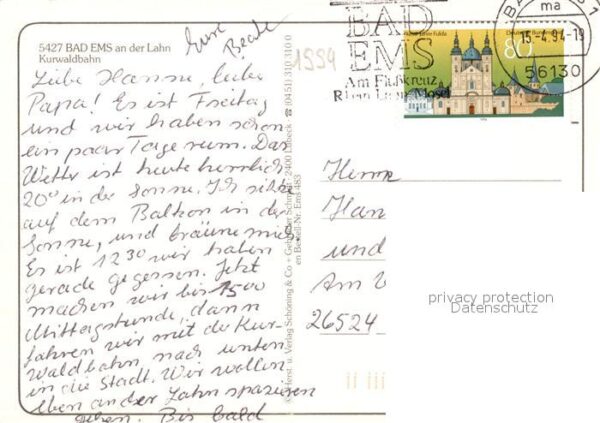 5427 BAD EMS an der Lahn
Kurwaldbahn
Eure
Beate
Liebe Hanne, lieber
Papa! Es ist Freitag
und wir haben schon
ein paar Tage rum. Das
Wetter ist heute herrlich
20° in der Sonne. Ich sitze
auf dem Balkon in der
Sonne, und bräune mich.
Es ist 12 30 wir haben
gerade gegessen. Jetzt
machen wir bis 15 00
Mittagstunde, dann
fahren wir mit der Kur-
waldbahn nach unten
in die Stadt. Wir wollen
eben an der Lahn spazieren
gehen. Bis bald
1994
Verlag Schöning & Co + Gebrüder Schmidt · 2400 Lübeck ☎ (0451) 310 310 0
en Bestell-Nr. Ems 483
BAD
EMS
Am Flußkreuz
Rhein Lahn Mosel
80
ma
15.-4.94-19
56130
Herrn
Han
und
Am
26524
privacy protection
Datenschutz